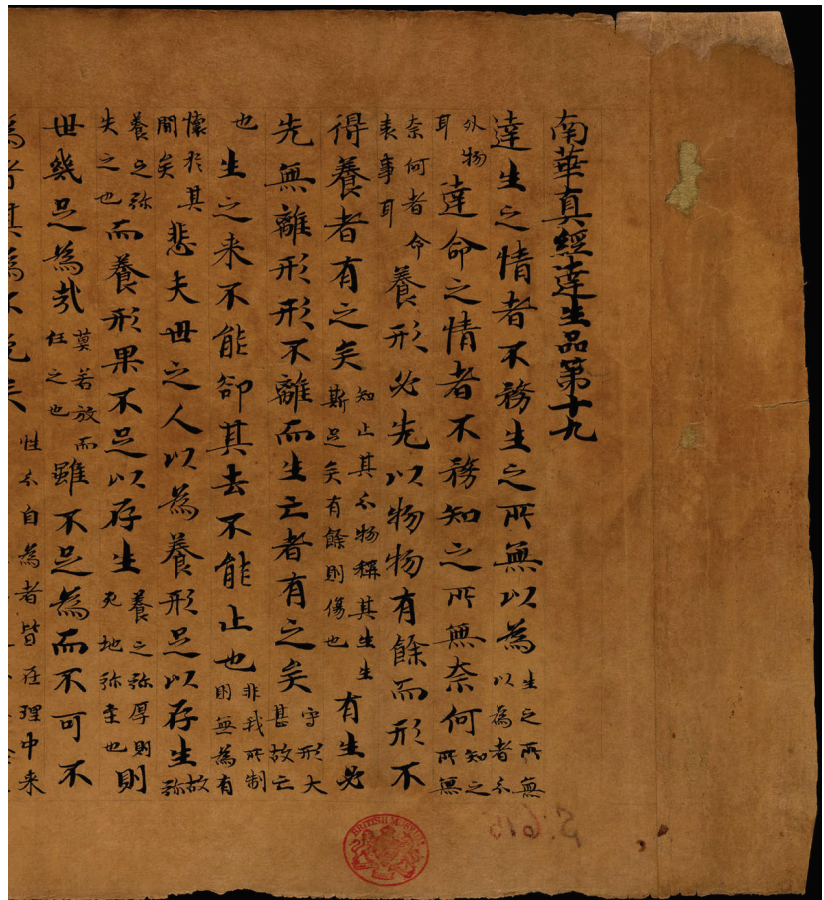 南華真經達生品第十九
達生之情者不務生之所無以為生之所無以為者分
外物耳達命之情者不務知之所無奈何知之所無
奈何者命表事耳養形必先以物物有餘而形不
得養者有之矣知止其分物稱其生生斯足矣有餘則傷也有生必
先無離形形不離而生亡者有之矣守形大甚故亡
也生之来不能卻其去不能止也非我所制則無為有
懷於其間矣悲夫世之人以為養形足以存生故弥
養之弥失之也而養形果不足以存生養之弥厚則死地弥至也則
世幾足為哉莫若放而任之也雖不足為而不可不
為者其為不免矣性分自為者皆在理中来
BRITISH MUSEUM
S. 615